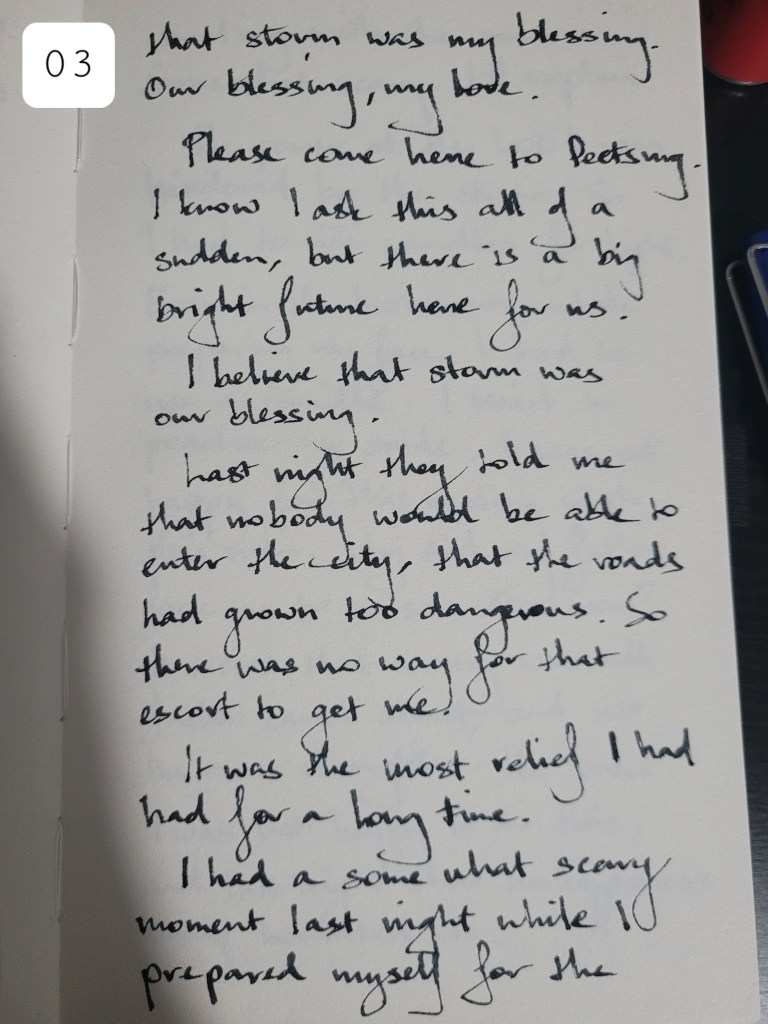 03
that storm was my blessing.
Our blessing, my love.
Please come here to Peetsing.
I know I ask this all of a
sudden, but there is a big
bright future here for us.
I believe that storm was
our blessing.
Last night they told me
that nobody would be able to
enter the city, that the roads
had grown too dangerous. So
there was no way for that
escort to get me.
It was the most relief I had
had for a long time.
I had a some what scary
moment last night while I
prepared myself for the